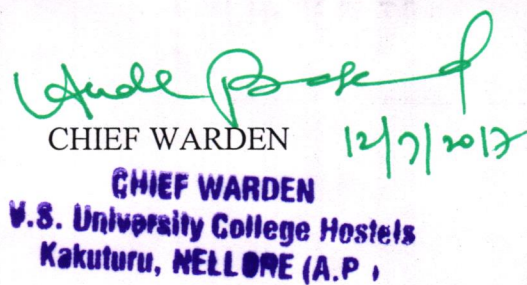 CHIEF WARDEN
12/7/2017
CHIEF WARDEN
V.S. University College Hostels
Kakuturu, NELLORE (A.P.)